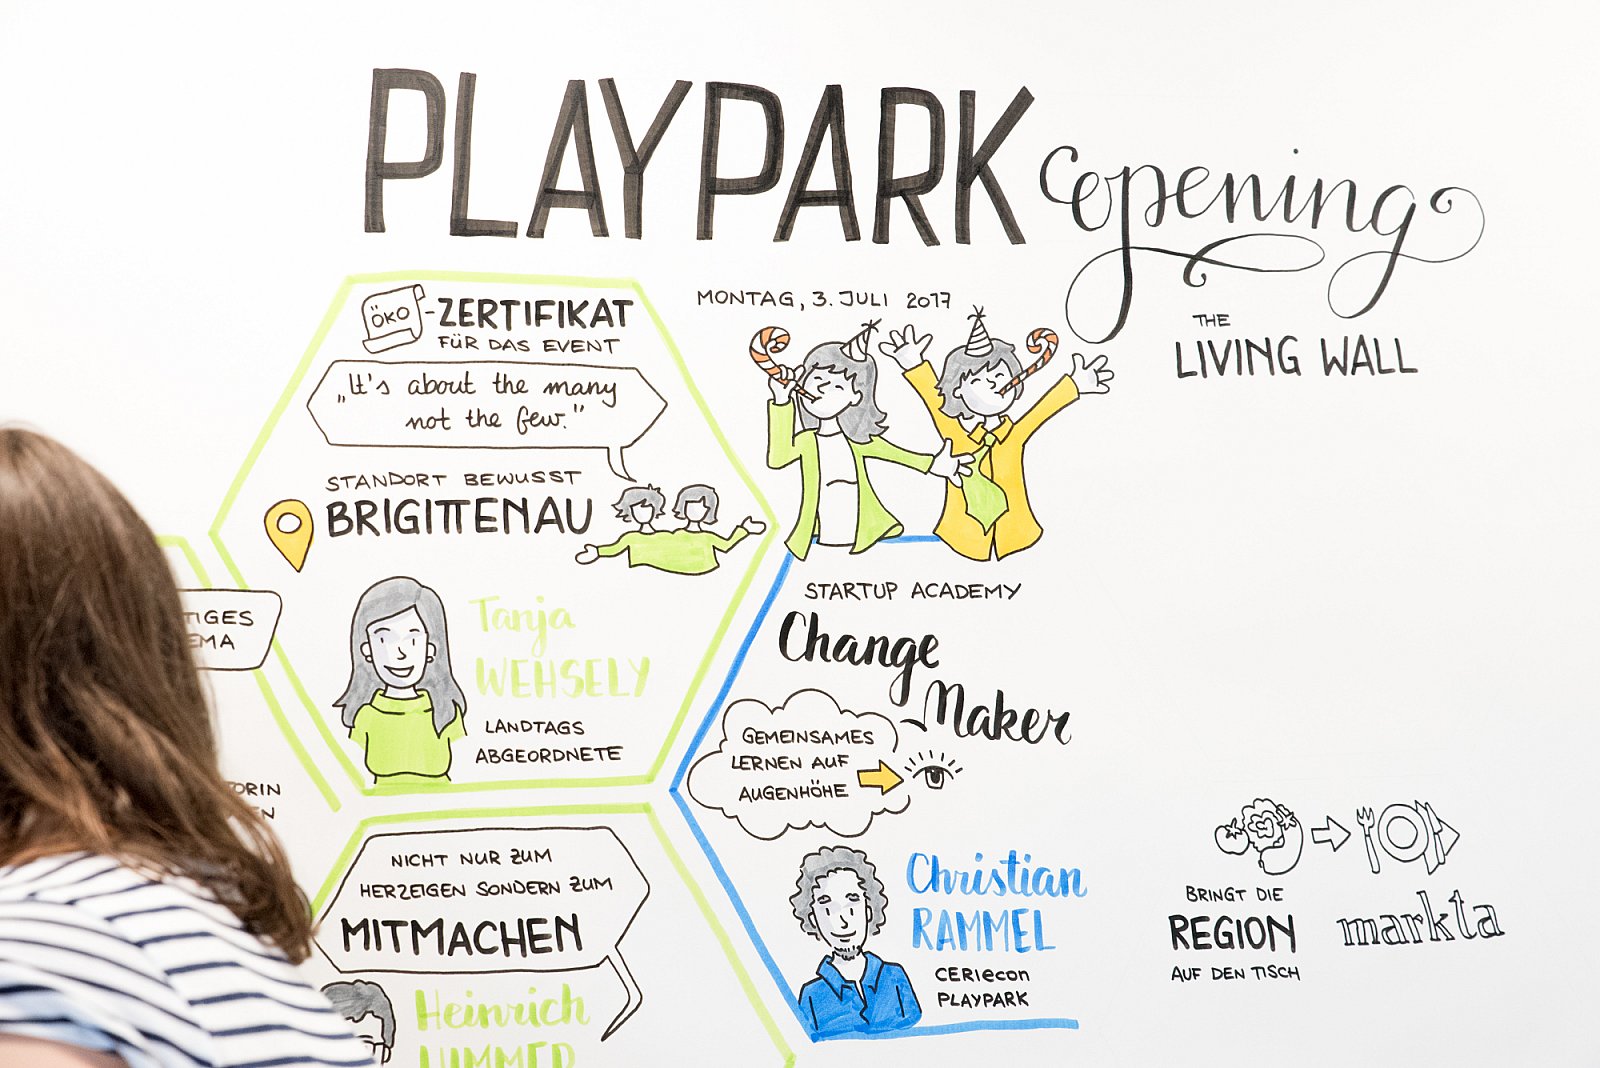 PLAYPARK opening
MONTAG, 3. JULI 2017
THE
LIVING WALL
ÖKO-ZERTIFIKAT
FÜR DAS EVENT
„It's about the many
not the few."
STANDORT BEWUSST
BRIGITTENAU
Tanja
WEHSELY
LANDTAGS
ABGEORDNETE
NICHT NUR ZUM
HERZEIGEN SONDERN ZUM
MITMACHEN
Heinrich
STARTUP ACADEMY
Change
Maker
GEMEINSAMES
LERNEN AUF
AUGENHÖHE
Christian
RAMMEL
CERIecon
PLAYPARK
BRINGT DIE
REGION
AUF DEN TISCH
markta